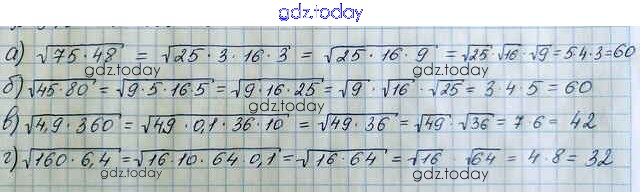 gdz.today
а) √75·48 = √25·3·16·3 = √25·16·9 = √25·√16·√9 = 5·4·3=60
gdz.today gdz.today
б) √45·80 = √9·5·16·5 = √9·16·25 = √9·√16·√25 = 3·4·5 = 60
gdz.today gdz.today
в) √4,9·360 = √49·0,1·36·10 = √49·36 = √49·√36 = 7·6 = 42
г) √160·6,4 = √16·10·64·0,1 = √16·64 = √16·√64 = 4·8 = 32
gdz.today gdz.today